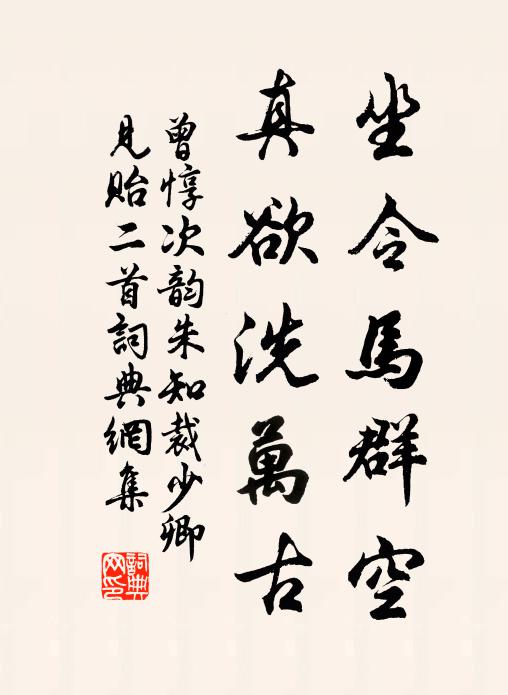 坐令馬群空
真欲洗萬古
曾惇次韵朱知裁少卿
見貽二首詞典網集
詞典網印